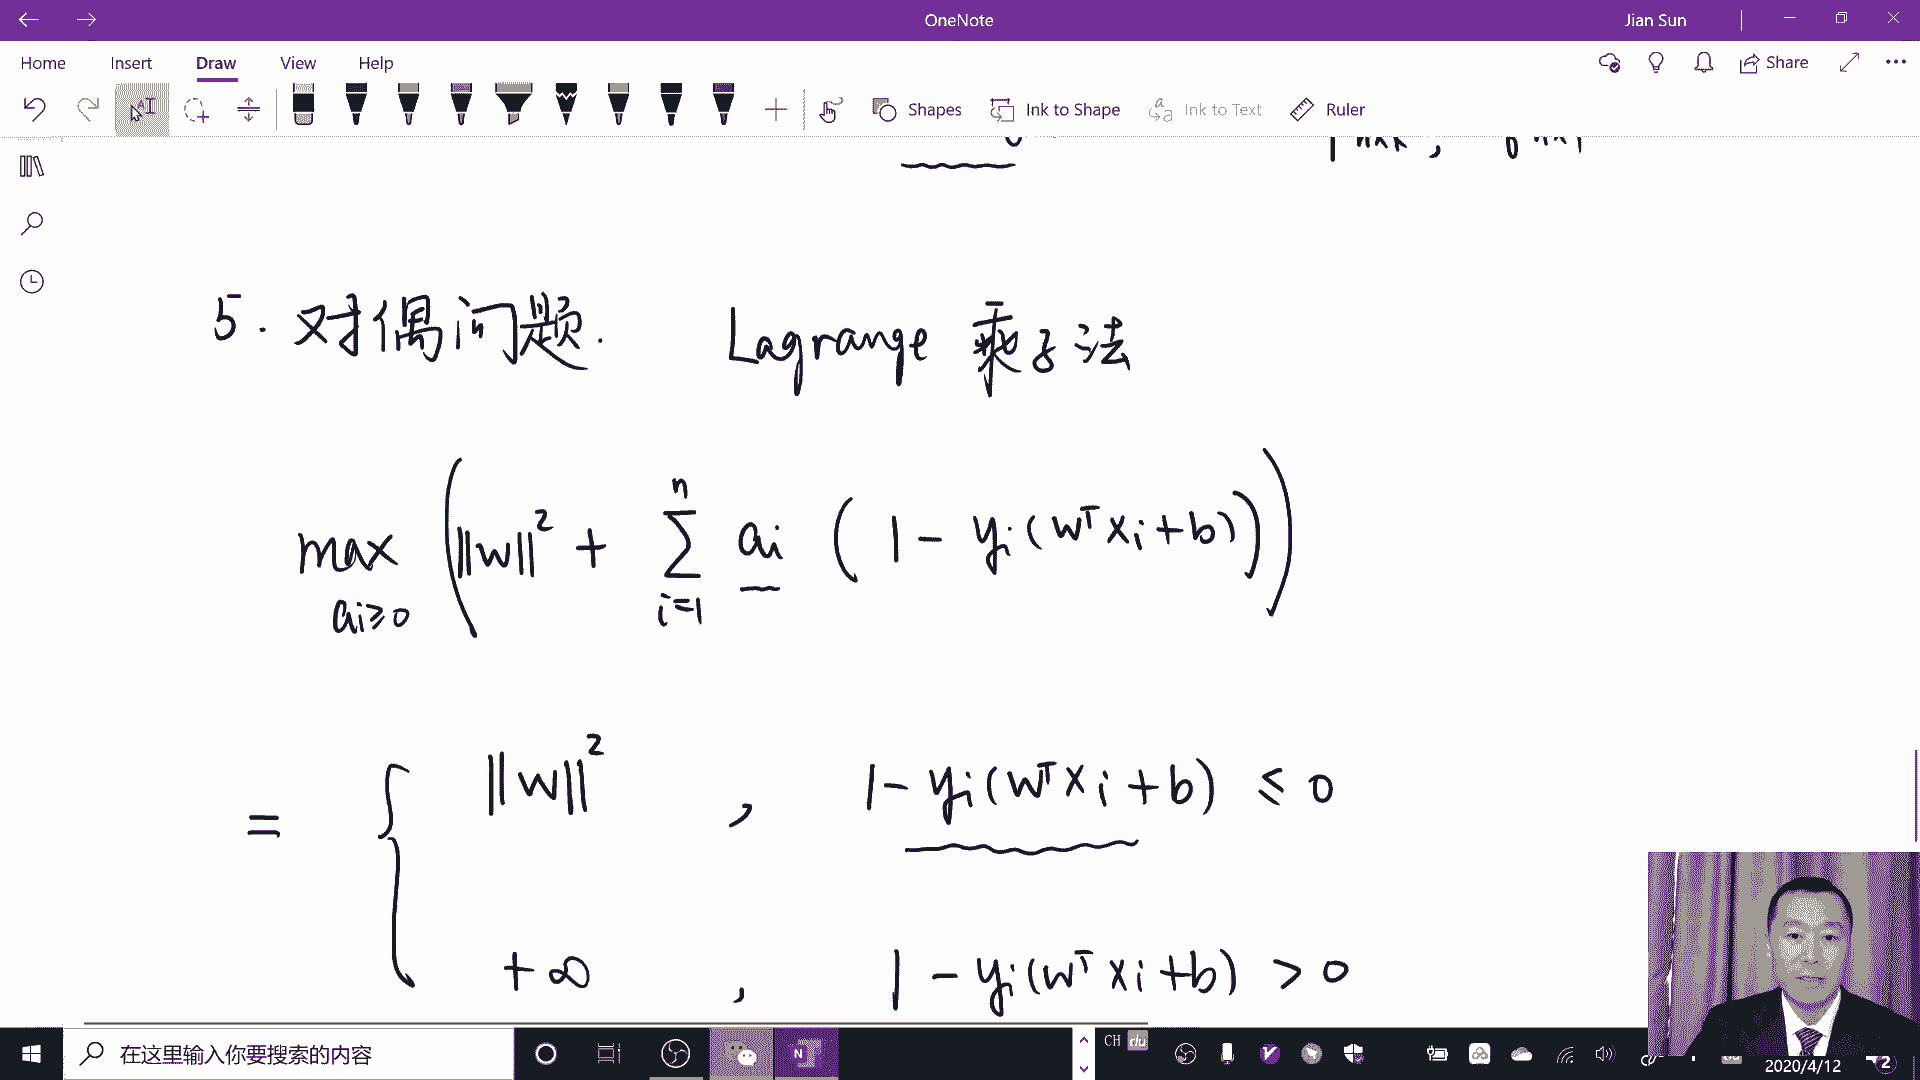 OneNote
Jian Sun
Home Insert Draw View Help
Share
Shapes Ink to Shape Ink to Text Ruler
5. 对偶问题. Lagrange 乘子法
max ( ||w||² + Σ ai ( 1 - yi(wᵀxi+b) ) )
n
i=1
ai≥0
= { ||w||² , 1 - yi(wᵀxi+b) ≤ 0
+∞ , 1 - yi(wᵀxi+b) > 0
在这里输入你要搜索的内容
CH du
2020/4/12
2